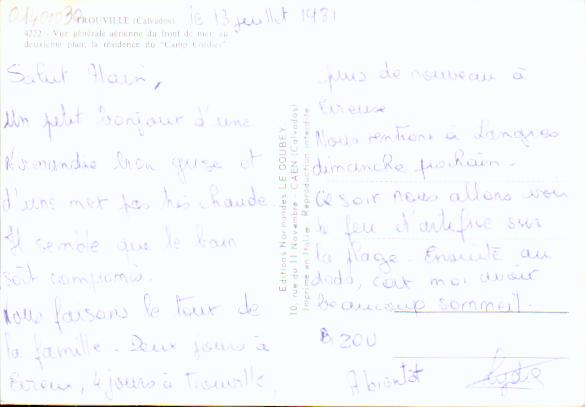 01401030
TROUVILLE (Calvados)
4222 - Vue générale aérienne du front de mer, au
deuxième plan, la résidence du "Camp Cordier"
le 13 juillet 1981
Salut Alain,
Un petit bonjour d'une
Normandie bien grise et
d'une mer pas très chaude
Il semble que le bain
soit compromis.
Nous faisons le tour de
la famille. Deux jours à
Evreux, 4 jours à Trouville,
Editions Normandes LE GOUBEY
10, rue du 11 Novembre - CAEN (Calvados)
Imprimé en Italie - Reproduction interdite
puis de nouveau à
Evreux
Nous rentrons à Langres
dimanche prochain.
Ce soir nous allons voir
le feu d'artifice sur
la plage. Ensuite au
dodo, car moi avoir
beaucoup sommeil.
BIZOU
A bientôt